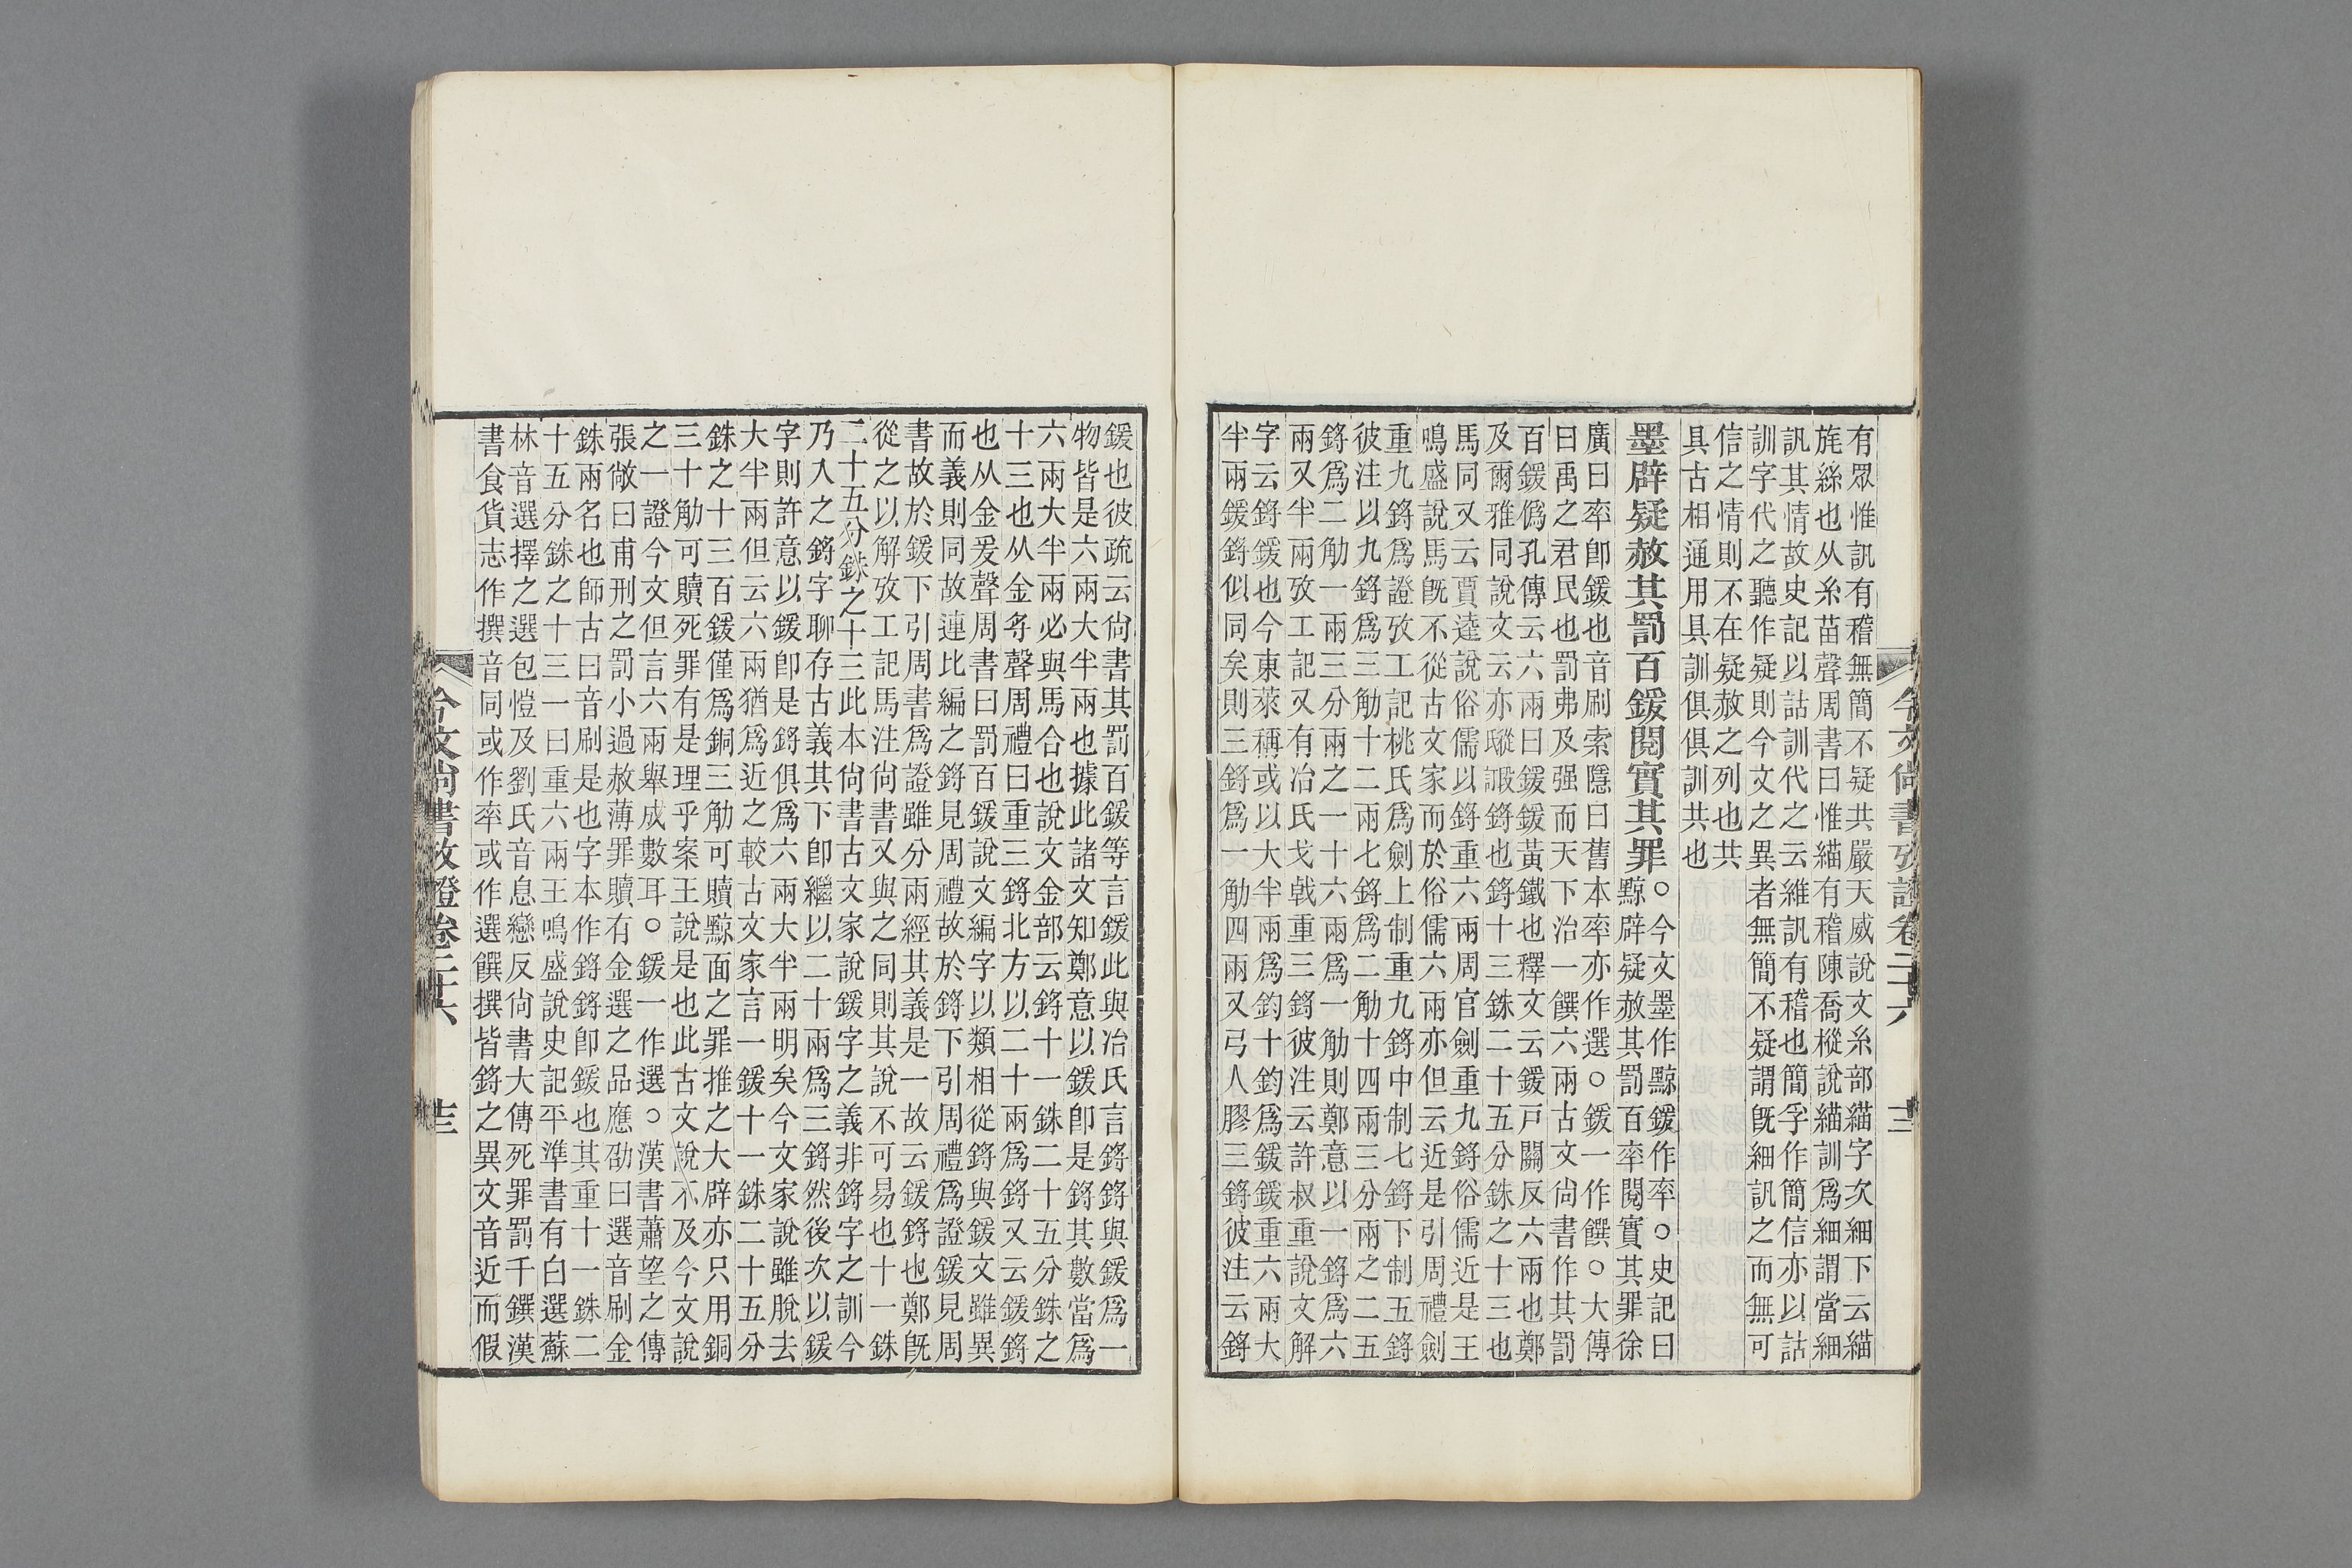 今文尚書攷證卷二十六
有眾惟訊有稽無簡不疑共嚴天威說文糸部緢字次細下云緢
旄絲也从糸苗聲周書曰惟緢有稽陳喬樅說緢訓爲細謂當細
訊其情故史記以詁訓代之云維訊有稽也簡孚作簡信亦以詁
訓字代之聽作疑則今文之異者無簡不疑謂旣細訊之而無可
信之情則不在疑赦之列也共
具古相通用具訓俱俱訓共也
墨辟疑赦其罰百鍰閱實其罪
○今文墨作黥鍰作率○史記曰
黥辟疑赦其罰百率閱實其罪徐
廣曰率卽鍰也音刷索隱曰舊本率亦作選○鍰一作饌○大傳
曰禹之君民也罰弗及强而天下治一饌六兩古文尙書作其罰
百鍰僞孔傳云六兩曰鍰鍰黃鐵也釋文云鍰戶關反六兩也鄭
及爾雅同說文云亦䥗鍜鋝也鋝十三銖二十五分銖之十三也
馬同又云賈逵說俗儒以鋝重六兩周官劍重九鋝俗儒近是王
鳴盛說馬旣不從古文家而於俗儒六兩亦但云近是引周禮劍
重九鋝爲證攷工記桃氏爲劍上制重九鋝中制七鋝下制五鋝
彼注以九鋝爲三觔十二兩七鋝爲二觔十四兩三分兩之二五
鋝爲二觔一兩三分兩之一十六兩爲一觔則鄭意以一鋝爲六
兩又半兩攷工記又有冶氏戈戟重三鋝彼注云許叔重說文解
字云鋝鍰也今東萊稱或以大半兩爲鈞十鈞爲鍰鍰重六兩大
半兩鍰鋝似同矣則三鋝爲一觔四兩又弓人膠三鋝彼注云鋝
鍰也彼疏云尙書其罰百鍰等言鍰此與冶氏言鋝鋝與鍰爲一
物皆是六兩大半兩也據此諸文知鄭意以鍰卽是鋝其數當爲
六兩大半兩必與馬合也說文金部云鋝十一銖二十五分銖之
十三也从金寽聲周禮曰重三鋝北方以二十兩爲鋝又云鍰鋝
也从金爰聲周書曰罰百鍰說文編字以類相從鋝與鍰文雖異
而義則同故連比編之鋝見周禮故於鋝下引周禮爲證鍰見周
書故於鍰下引周書爲證雖分兩經其義是一故云鍰鋝也鄭旣
從之以解攷工記馬注尙書又與之同則其說不可易也十一銖
二十五分銖之十三此本尙書古文家說鍰字之義非鋝字之訓今
乃入之鋝字聊存古義其下卽繼以二十兩爲三鋝然後次以鍰
字則許意以鍰卽是鋝俱爲六兩大半兩明矣今文家說雖脫去
大半兩但云六兩猶爲近之較古文家言一鍰十一銖二十五分
銖之十三百鍰僅爲銅三觔可贖黥面之罪推之大辟亦只用銅
三十觔可贖死罪有是理乎案王說是也此古文說不及今文說
之一證今文但言六兩舉成數耳○鍰一作選○漢書蕭望之傳
張敞曰甫刑之罰小過赦薄罪贖有金選之品應劭曰選音刷金
銖兩名也師古曰音刷是也字本作鋝鋝卽鍰也其重十一銖二
十五分銖之十三一曰重六兩王鳴盛說史記平準書有白選蘇
林音選擇之選包愷及劉氏音息戀反尙書大傳死罪罰千饌漢
書食貨志作撰音同或作率或作選饌撰皆鋝之異文音近而假
今文尚書攷證卷二十六